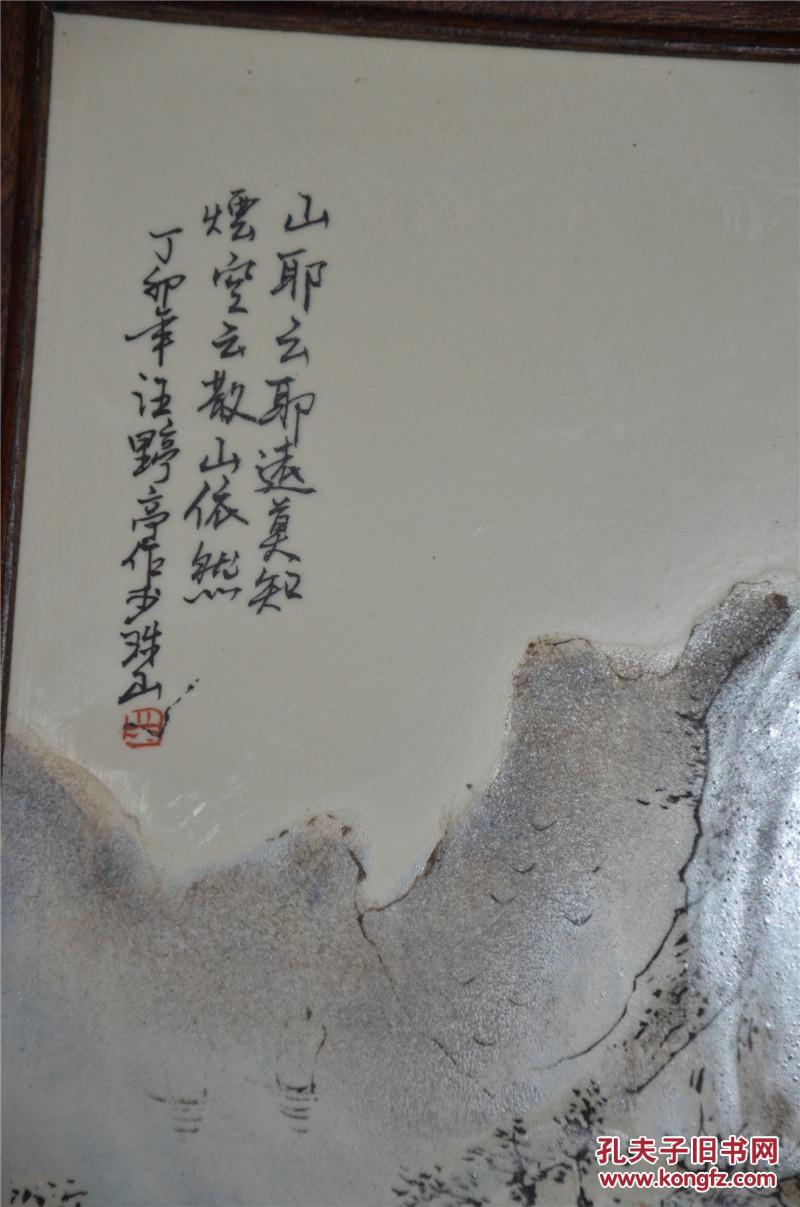 山耶云耶遠莫知
煙空云散山依然
丁卯年汪野亭作于珠山
孔夫子旧书网
www.kongfz.com